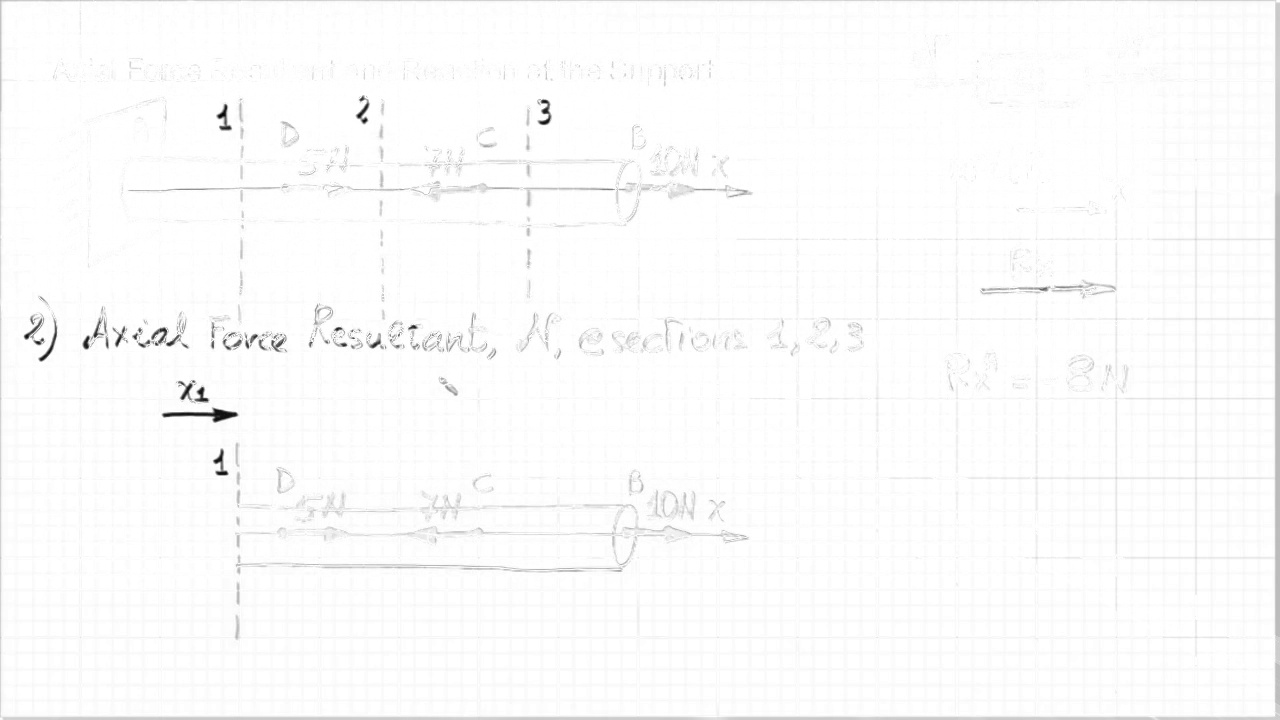 Axial Force Resultant and Reaction at the Support
1 2 3
D C B
5N 7N 10N x
Rx
2) Axial Force Resultant, N, @sections 1,2,3
Rx^A = -8N
x1
1
D C B
5N 7N 10N x